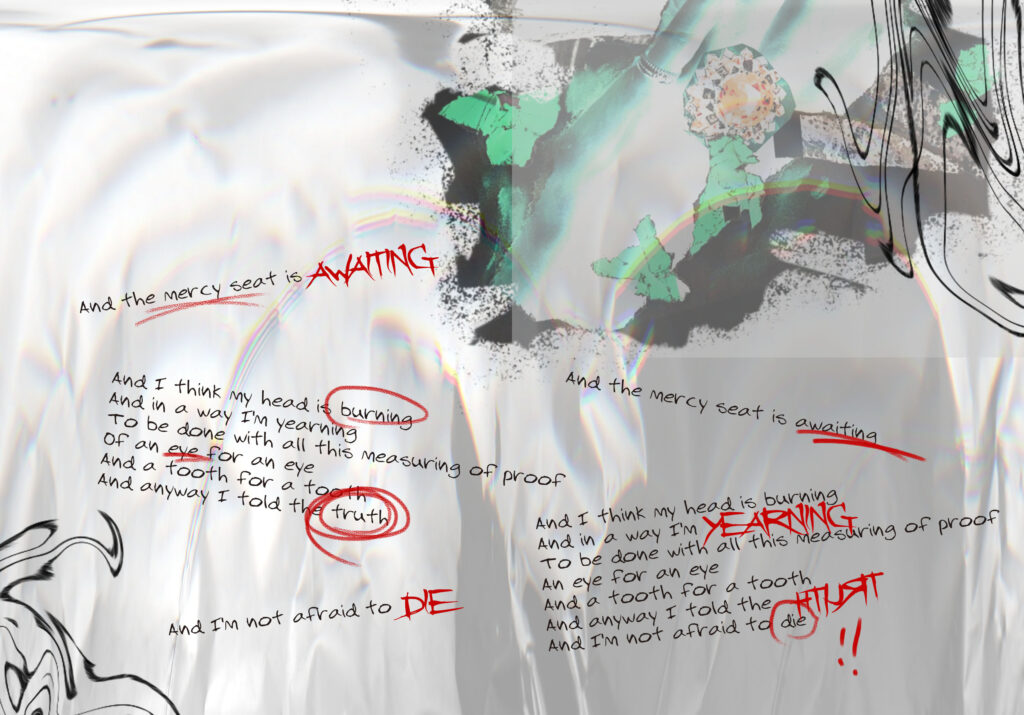 And the mercy seat is AWAITING
And I think my head is burning
And in a way I'm yearning
To be done with all this measuring of proof
Of an eye for an eye
And a tooth for a tooth
And anyway I told the truth
And I'm not afraid to DIE
And the mercy seat is awaiting
And I think my head is burning
And in a way I'm YEARNING
To be done with all this measuring of proof
An eye for an eye
And a tooth for a tooth
And anyway I told the TRUTH
And I'm not afraid to die
!!